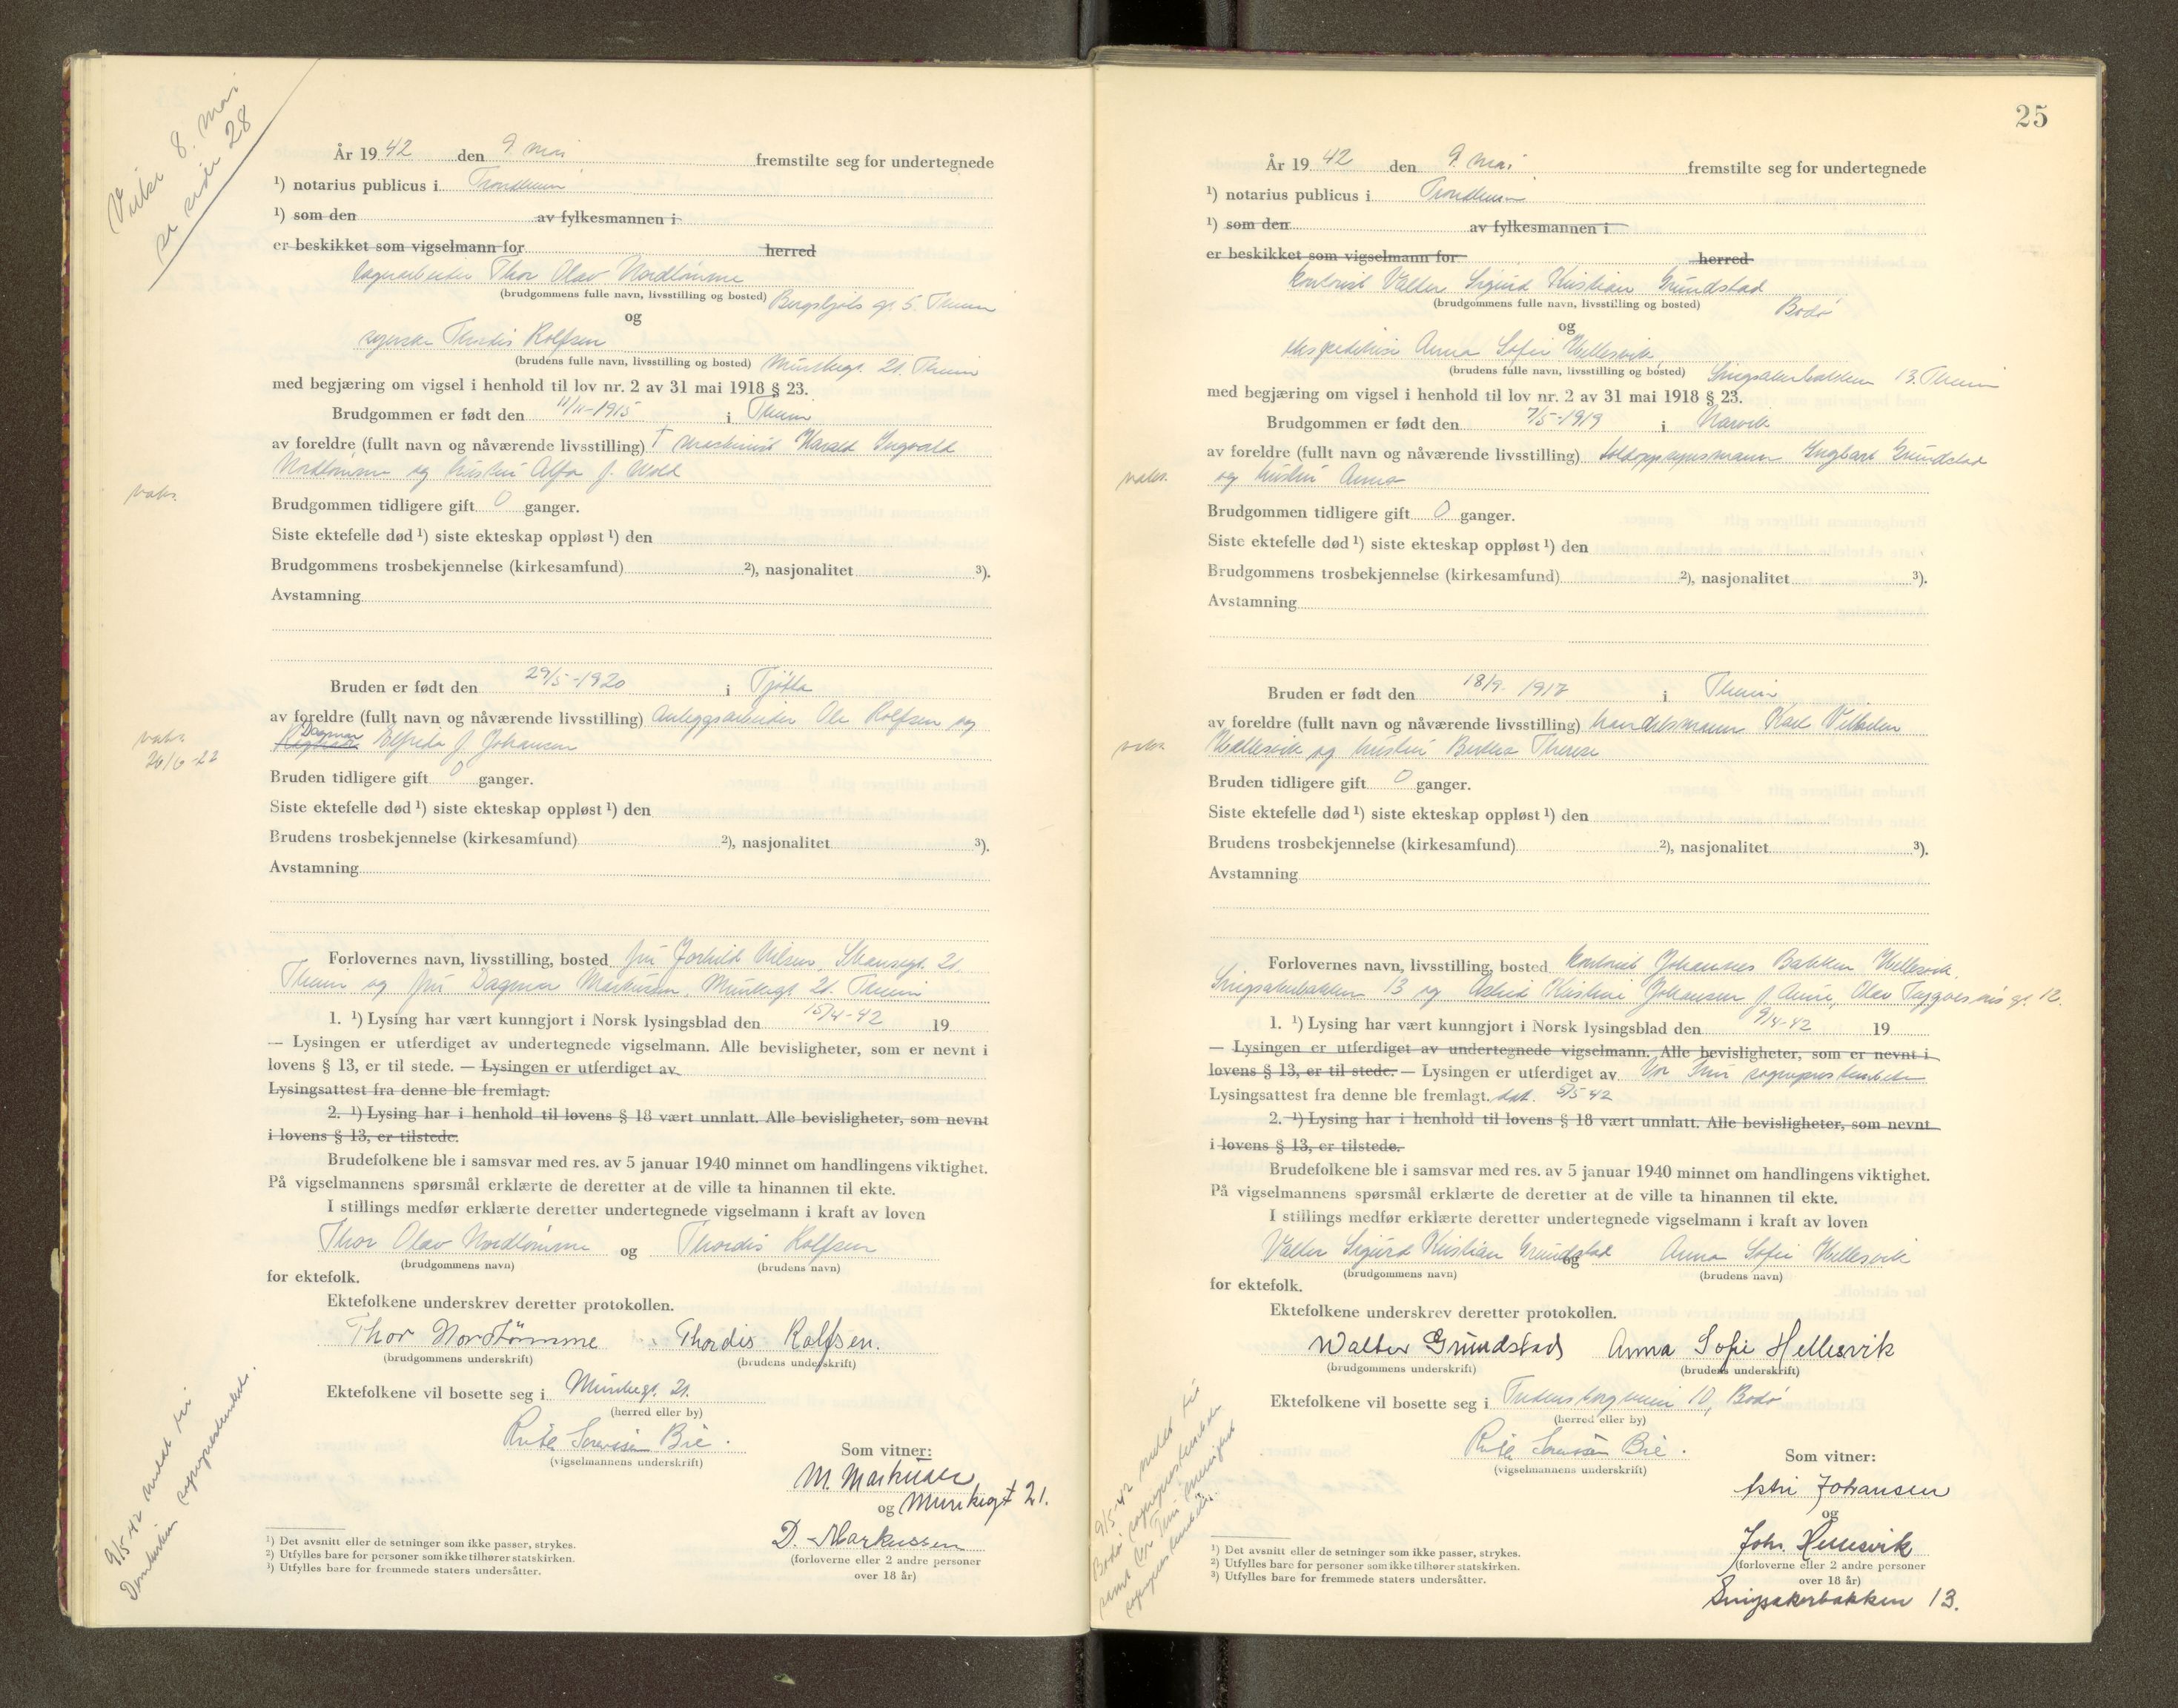 Vielse 8. mai
se side 28
År 19 42 den 9. mai fremstilte seg for undertegnede
¹) notarius publicus i Trondheim
¹) som den av fylkesmannen i
er beskikket som vigselmann for herred
lagerarbeider Thor Olav Nordtømme
(brudgommens fulle navn, livsstilling og bosted) Bergsligts g. 5. Theim
og
syerske Thordis Rolfsen
(brudens fulle navn, livsstilling og bosted) Munkegt. 21. Theim
med begjæring om vigsel i henhold til lov nr. 2 av 31 mai 1918 § 23.
Brudgommen er født den 11/11-1915 i Theim
av foreldre (fullt navn og nåværende livsstilling) † maskinist Harald Ingvald
Nordtømme og hustru Alfa f. Wold
vaks.
Brudgommen tidligere gift 0 ganger.
Siste ektefelle død ¹) siste ekteskap oppløst ¹) den
Brudgommens trosbekjennelse (kirkesamfund) ²), nasjonalitet ³).
Avstamning
Bruden er født den 29/5-1920 i Tjøtta
av foreldre (fullt navn og nåværende livsstilling) anleggsarbeider Ole Rolfsen og
Dagmar Elfreda f. Johansen
vaks.
26/6-22
Bruden tidligere gift 0 ganger.
Siste ektefelle død ¹) siste ekteskap oppløst ¹) den
Brudens trosbekjennelse (kirkesamfund) ²), nasjonalitet ³).
Avstamning
Forlovernes navn, livsstilling, bosted fru Jorhild Nilsen, 21.
Theim og fru Dagmar Markussen, Munkegt 21. Theim
1. ¹) Lysing har vært kunngjort i Norsk lysingsblad den 15/4-42 19
— Lysingen er utferdiget av undertegnede vigselmann. Alle bevisligheter, som er nevnt i
lovens § 13, er til stede. — Lysingen er utferdiget av
Lysingsattest fra denne ble fremlagt.
2. ¹) Lysing har i henhold til lovens § 18 vært unnlatt. Alle bevisligheter, som nevnt
i lovens § 13, er tilstede.
Brudefolkene ble i samsvar med res. av 5 januar 1940 minnet om handlingens viktighet.
På vigselmannens spørsmål erklærte de deretter at de ville ta hinannen til ekte.
I stillings medfør erklærte deretter undertegnede vigselmann i kraft av loven
Thor Olav Nordtømme og Thordis Rolfsen
(brudgommens navn) (brudens navn)
for ektefolk.
Ektefolkene underskrev deretter protokollen.
Thor Nordtømme Thordis Rolfsen.
(brudgommens underskrift) (brudens underskrift)
Ektefolkene vil bosette seg i Munkegt. 21.
(herred eller by)
Rute Sorenssen Bie.
(vigselmannens underskrift)
Som vitner:
M. Markussen
og Munkegt 21.
D. Markussen
(forloverne eller 2 andre personer
over 18 år)
9/5-42 meldt til
Domkirken sogneprestembede.
¹) Det avsnitt eller de setninger som ikke passer, strykes.
²) Utfylles bare for personer som ikke tilhører statskirken.
³) Utfylles bare for fremmede staters undersåtter.
25
År 19 42 den 9. mai fremstilte seg for undertegnede
¹) notarius publicus i Trondheim
¹) som den av fylkesmannen i
er beskikket som vigselmann for herred
kontorist Valter Sigurd Kristian Grundstad
(brudgommens fulle navn, livsstilling og bosted) Bodø
og
ekspeditrise Anna Sofie Hellesvik
(brudens fulle navn, livsstilling og bosted) Singsakerbakken 13. Theim
med begjæring om vigsel i henhold til lov nr. 2 av 31 mai 1918 § 23.
Brudgommen er født den 7/5-1919 i Narvik
av foreldre (fullt navn og nåværende livsstilling) toldoppsynsmann Engbart Grundstad
og hustru Anna
vaks.
Brudgommen tidligere gift 0 ganger.
Siste ektefelle død ¹) siste ekteskap oppløst ¹) den
Brudgommens trosbekjennelse (kirkesamfund) ²), nasjonalitet ³).
Avstamning
Bruden er født den 18/9. 1917 i Theim
av foreldre (fullt navn og nåværende livsstilling) handelsmann Karl Vilhelm
Hellesvik og hustru Berthea Therese
vaks.
Bruden tidligere gift 0 ganger.
Siste ektefelle død ¹) siste ekteskap oppløst ¹) den
Brudens trosbekjennelse (kirkesamfund) ²), nasjonalitet ³).
Avstamning
Forlovernes navn, livsstilling, bosted kontorist Johannes Bakken Hellesvik,
Singsakerbakken 13 og Astrid Kristine Johansen f. Aune, Olav Tryggvesøns gt. 12.
1. ¹) Lysing har vært kunngjort i Norsk lysingsblad den 9/4-42 19
— Lysingen er utferdiget av undertegnede vigselmann. Alle bevisligheter, som er nevnt i
lovens § 13, er til stede. — Lysingen er utferdiget av Vor Frue sogneprestembete
Lysingsattest fra denne ble fremlagt. dat. 5/5-42
2. ¹) Lysing har i henhold til lovens § 18 vært unnlatt. Alle bevisligheter, som nevnt
i lovens § 13, er tilstede.
Brudefolkene ble i samsvar med res. av 5 januar 1940 minnet om handlingens viktighet.
På vigselmannens spørsmål erklærte de deretter at de ville ta hinannen til ekte.
I stillings medfør erklærte deretter undertegnede vigselmann i kraft av loven
Valter Sigurd Kristian Grundstad og Anna Sofie Hellesvik
(brudgommens navn) (brudens navn)
for ektefolk.
Ektefolkene underskrev deretter protokollen.
Walter Grundstad Anna Sofie Hellesvik
(brudgommens underskrift) (brudens underskrift)
Ektefolkene vil bosette seg i Fredensborgveien 10, Bodø
(herred eller by)
Rute Sorenssen Bie.
(vigselmannens underskrift)
Som vitner:
Astri Johansen
og
Joh. Hellesvik
(forloverne eller 2 andre personer
over 18 år)
Singsakerbakken 13.
9/5-42 meldt til
Bodø sogneprestembete
samt Vor Frue menighet
sogneprestembete.
¹) Det avsnitt eller de setninger som ikke passer, strykes.
²) Utfylles bare for personer som ikke tilhører statskirken.
³) Utfylles bare for fremmede staters undersåtter.